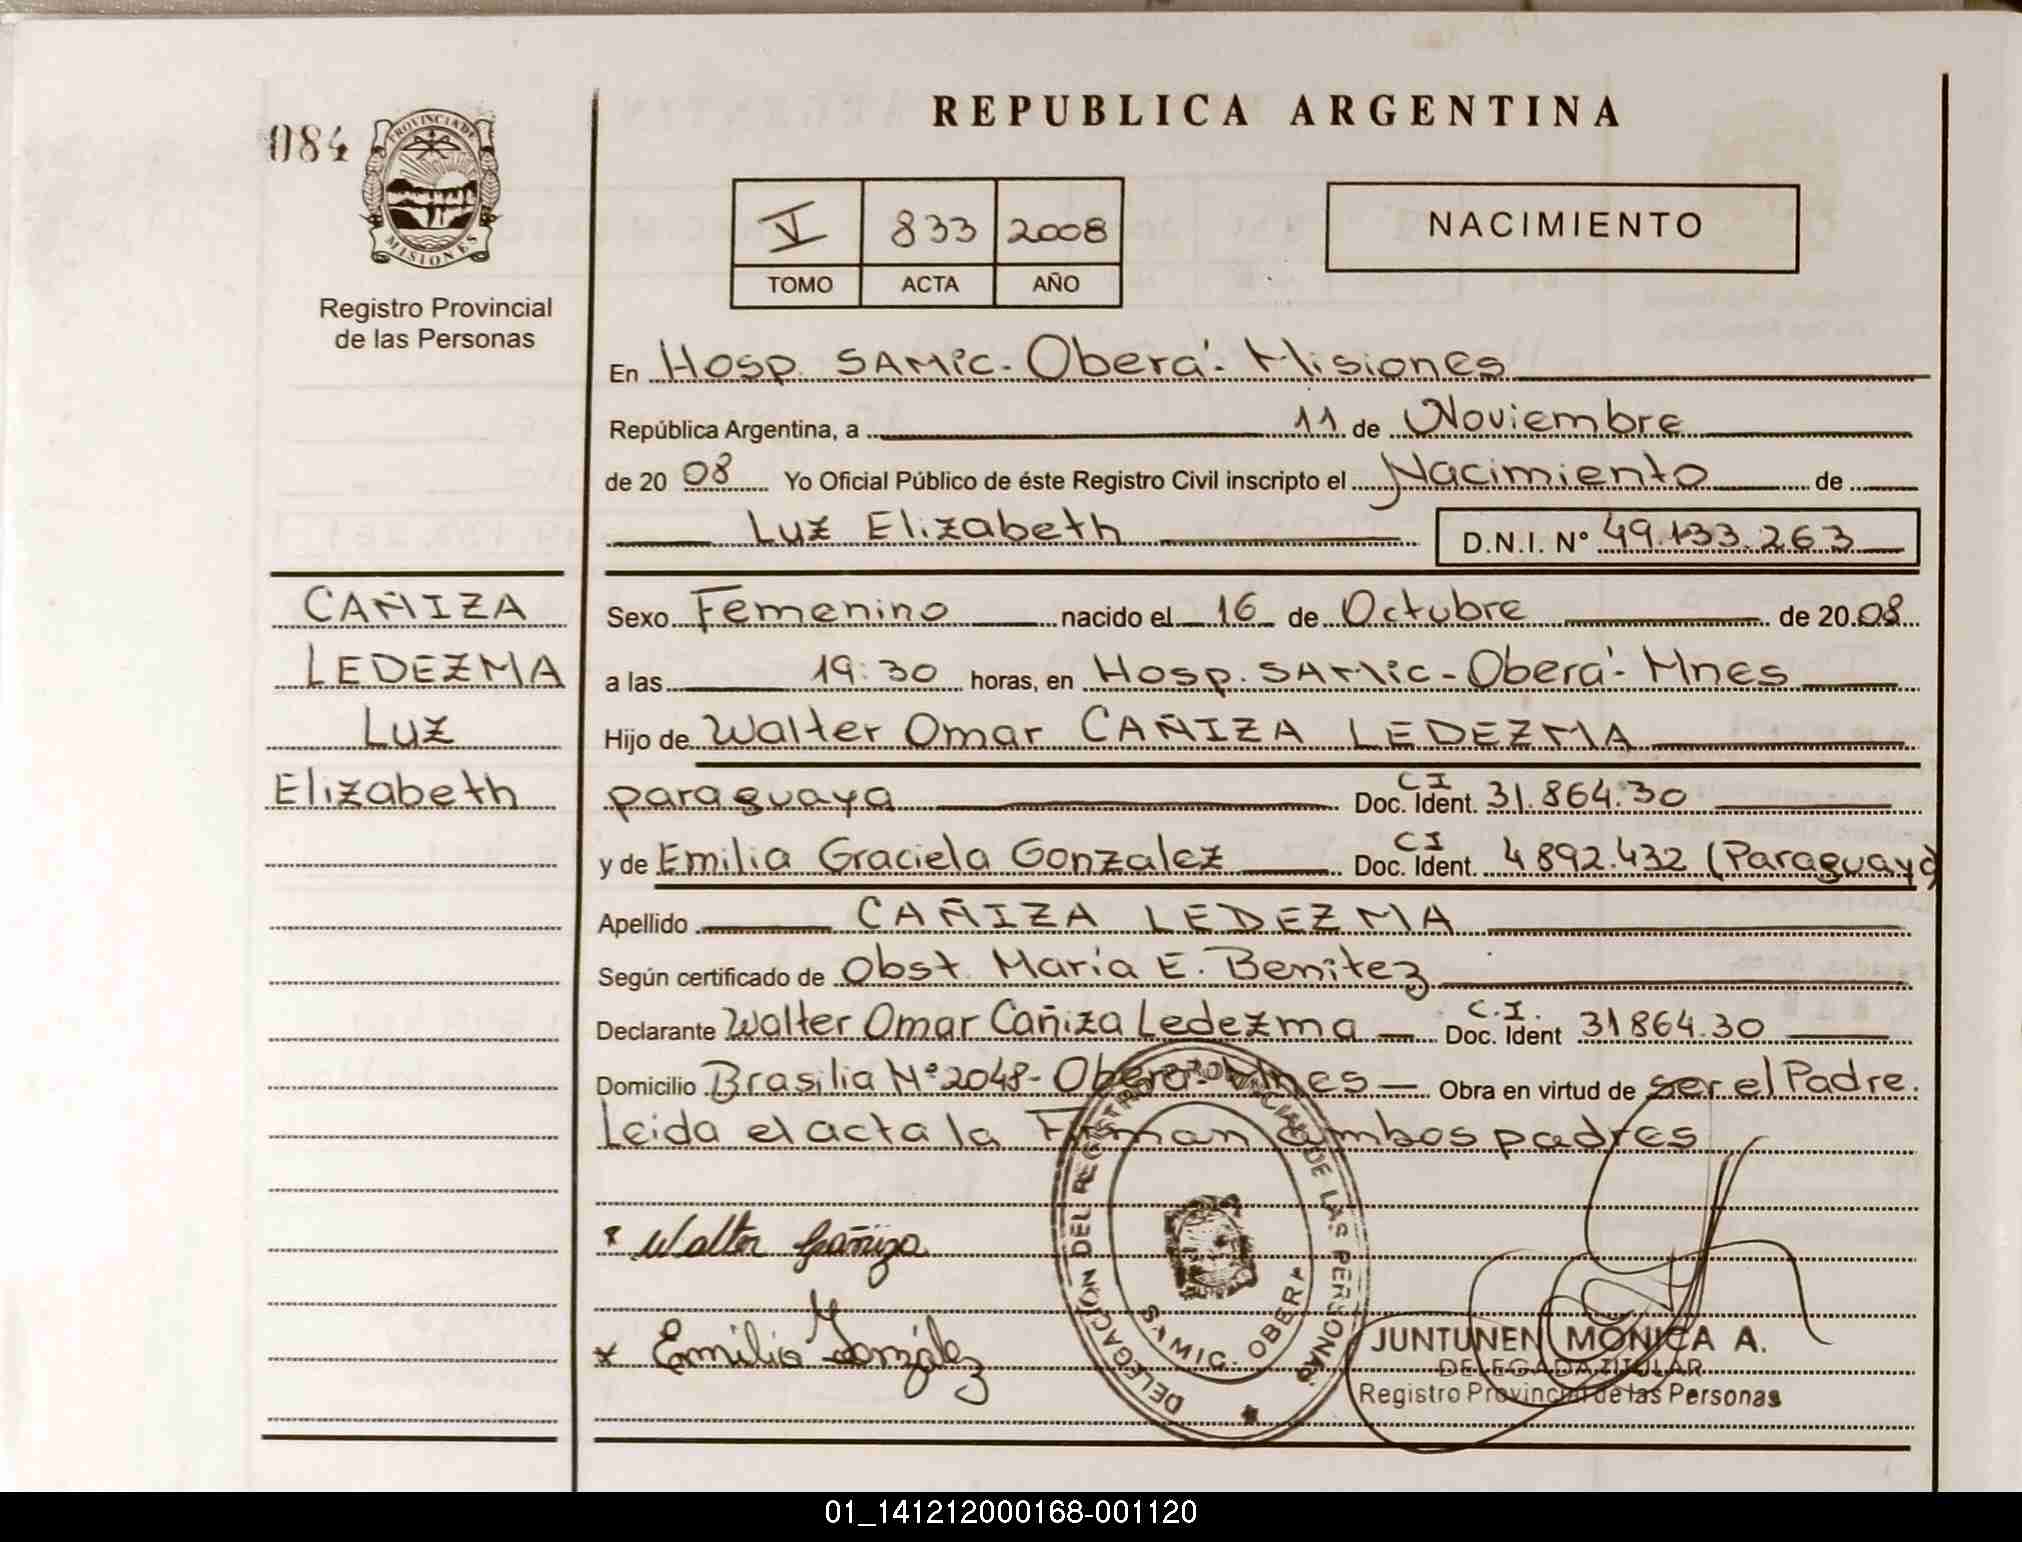 084
PROVINCIA DE
MISIONES
Registro Provincial
de las Personas
REPUBLICA ARGENTINA
V 833 2008
TOMO ACTA AÑO
NACIMIENTO
En Hosp. SAMIC - Oberá - Misiones
República Argentina, a 11 de Noviembre
de 2008 Yo Oficial Público de éste Registro Civil inscripto el Nacimiento de
Luz Elizabeth D.N.I. N° 49.133.263
CAÑIZA
LEDEZMA
Luz
Elizabeth
Sexo Femenino nacido el 16 de Octubre de 2008
a las 19:30 horas, en Hosp. SAMIC - Oberá - Mnes
Hijo de Walter Omar CAÑIZA LEDEZMA
paraguaya C I Doc. Ident. 31.864.30
y de Emilia Graciela Gonzalez C I Doc. Ident. 4892.432 (Paraguaya)
Apellido CAÑIZA LEDEZMA
Según certificado de Obst. Maria E. Benitez
Declarante Walter Omar Cañiza Ledezma C.I. Doc. Ident 31864.30
Domicilio Brasilia N° 2048 - Oberá - Mnes Obra en virtud de ser el Padre.
Leida el acta la Firman ambos padres
Walter Cañiza
Emilia González
DELEGACIÓN DEL REGISTRO PROVINCIAL DE LAS PERSONAS
SAMIC. OBERA
JUNTUNEN MONICA A.
DELEGADA TITULAR
Registro Provincial de las Personas
01_141212000168-001120